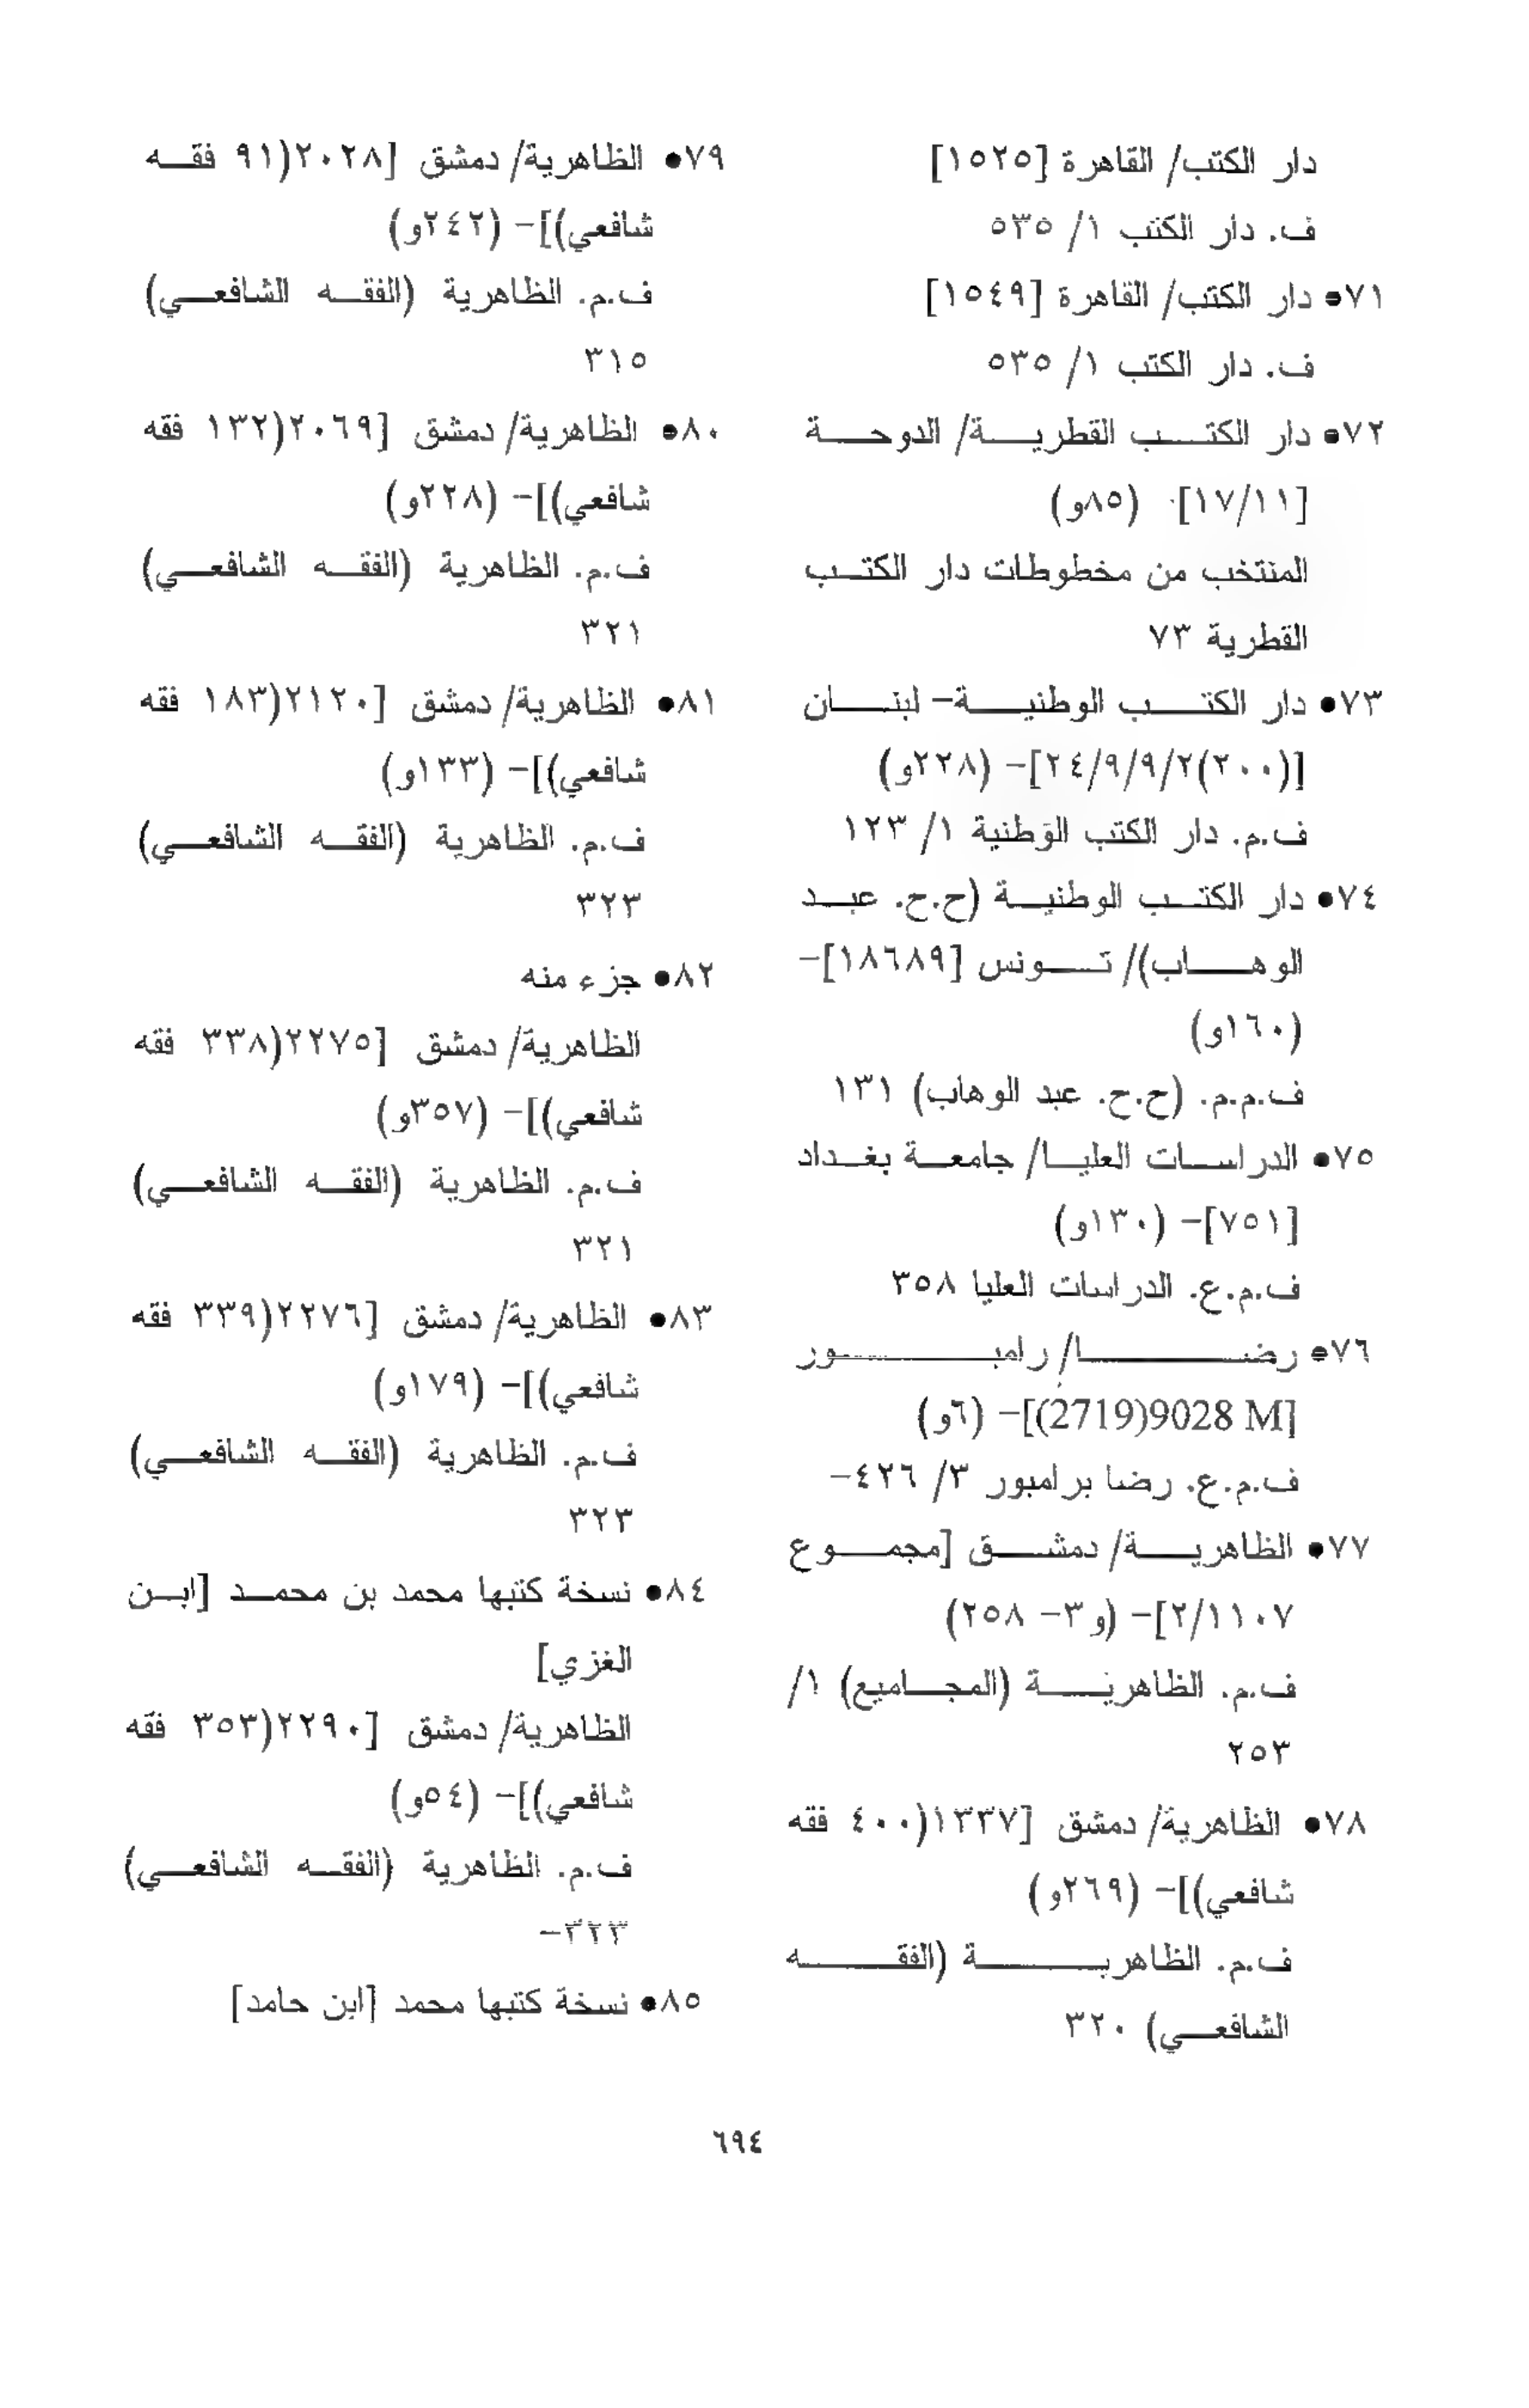 دار الكتب/ القاهرة [١٥٢٥]
ف. دار الكتب ١/ ٥٣٥
٧١● دار الكتب/ القاهرة [١٥٤٩]
ف. دار الكتب ١/ ٥٣٥
٧٢● دار الكتب القطرية/ الدوحة
[١٧/١١] (٨٥و)
المنتخب من مخطوطات دار الكتب
القطرية ٧٣
٧٣● دار الكتب الوطنية- لبنان
[(٢٠٠)٢٤/٩/٩/٢]- (٢٢٨و)
ف.م. دار الكتب الوطنية ١/ ١٢٣
٧٤● دار الكتب الوطنية (ح.ح. عبد
الوهاب)/ تونس [١٨٦٨٩]-
(١٦٠و)
ف.م.م. (ح.ح. عبد الوهاب) ١٣١
٧٥● الدراسات العليا/ جامعة بغداد
[٧٥١]- (١٣٠و)
ف.م.ع. الدراسات العليا ٣٥٨
٧٦● رضا/ رامبور
[(2719)9028 M]- (٦و)
ف.م.ع. رضا برامبور ٣/ ٤٢٦-
٧٧● الظاهرية/ دمشق [مجموع
٢/١١٠٧]- (و٣- ٢٥٨)
ف.م. الظاهرية (المجاميع) ١/
٢٥٣
٧٨● الظاهرية/ دمشق [١٣٣٧(٤٠٠ فقه
شافعي)]- (٢٦٩و)
ف.م. الظاهرية (الفقه
الشافعي) ٣٢٠
٧٩● الظاهرية/ دمشق [٢٠٢٨(٩١ فقه
شافعي)]- (٢٤٢و)
ف.م. الظاهرية (الفقه الشافعي)
٣١٥
٨٠● الظاهرية/ دمشق [٢٠٦٩(١٣٢ فقه
شافعي)]- (٢٢٨و)
ف.م. الظاهرية (الفقه الشافعي)
٣٢١
٨١● الظاهرية/ دمشق [٢١٢٠(١٨٣ فقه
شافعي)]- (١٣٣و)
ف.م. الظاهرية (الفقه الشافعي)
٣٢٣
٨٢● جزء منه
الظاهرية/ دمشق [٢٢٧٥(٣٣٨ فقه
شافعي)]- (٣٥٧و)
ف.م. الظاهرية (الفقه الشافعي)
٣٢١
٨٣● الظاهرية/ دمشق [٢٢٧٦(٣٣٩ فقه
شافعي)]- (١٧٩و)
ف.م. الظاهرية (الفقه الشافعي)
٣٢٣
٨٤● نسخة كتبها محمد بن محمد [ابن
الغزي]
الظاهرية/ دمشق [٢٢٩٠(٣٥٣ فقه
شافعي)]- (٥٤و)
ف.م. الظاهرية (الفقه الشافعي)
٣٢٣-
٨٥● نسخة كتبها محمد [ابن حامد]
٦٩٤